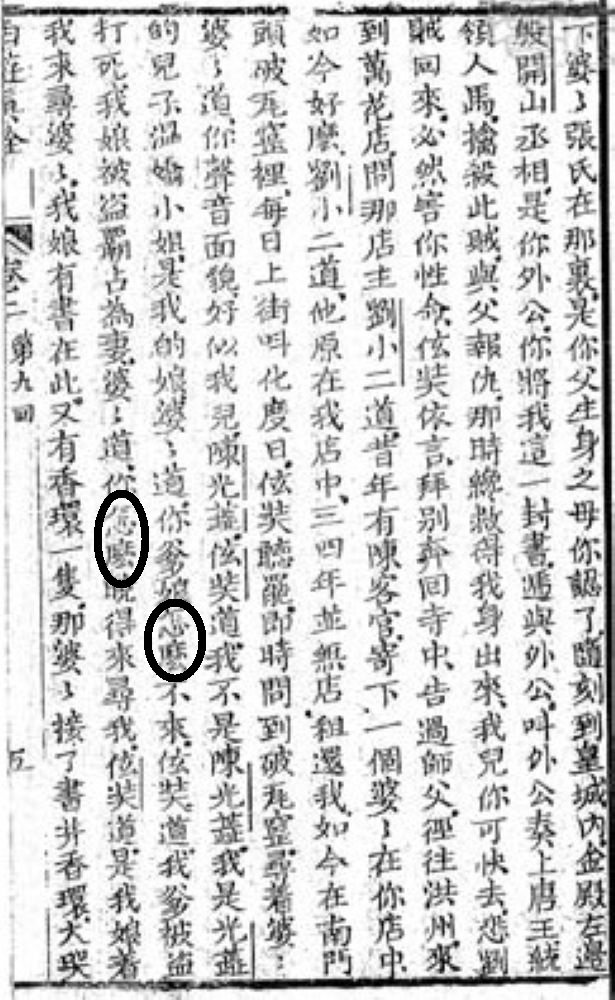 下婆〻張氏在那裏是你父生身之母你認了隨刻到皇城内金殿左邊
殷開山丞相是你外公你將我這一封書遞與外公叫外公奏上唐王統
領人馬擒殺此賊與父報仇那時纔救得我身出來我兒你可快去恐劉
賊回來必然害你性命伭奘依言拜别奔回寺中告過師父徑往洪州來
到萬花店問那店主劉小二道昔年有陳客官寄下一個婆〻在你店中
如今好麽劉小二道他原在我店中三四年並無店租還我如今在南門
頭破瓦窰裡每日上街叫化度日伭奘聽罷即時問到破瓦窰尋着婆〻
婆〻道你聲音面貌好似我兒陳光蕋伭奘道我不是陳光蕋我是光蕋
的兒子温嬌小姐是我的娘婆〻道你爹娘怎麽不來伭奘道我爹被盗
打死我娘被盗霸占為妻婆〻道你怎麽曉得來尋我伭奘道是我娘着
我來尋婆〻我娘有書在此又有香環一隻那婆〻接了書并香環大哭
卷二 第九回 五